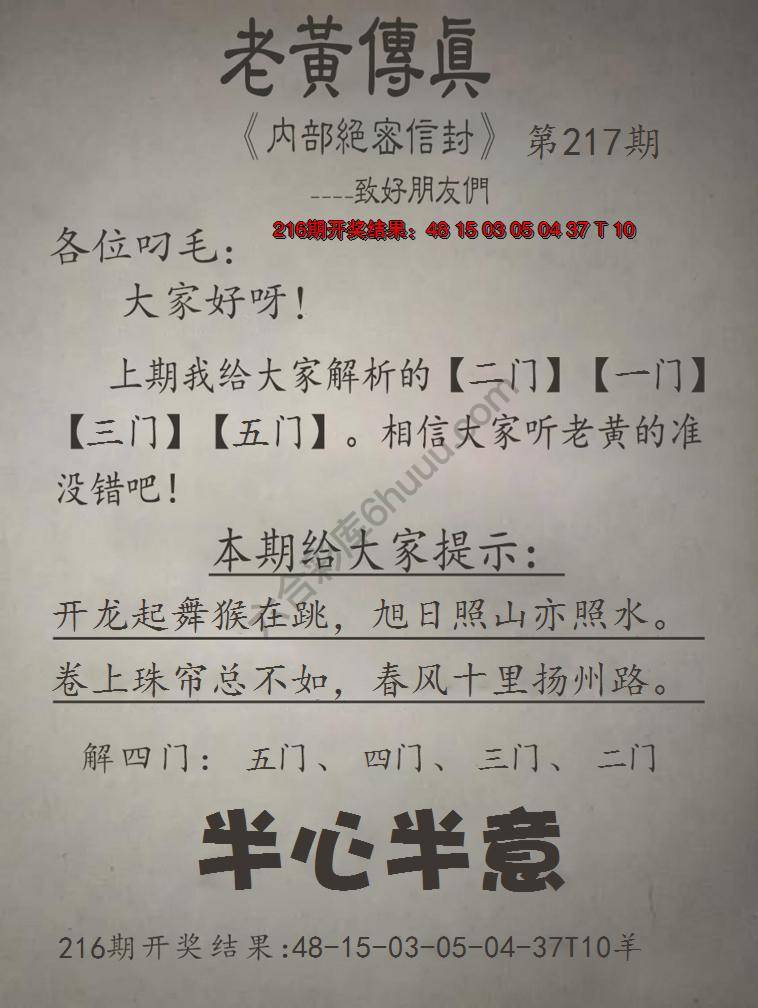 老黃傳眞
《内部絕密信封》 第217期
----致好朋友們
216期开奖结果：48 15 03 05 04 37 T 10
各位叼毛：
大家好呀！
上期我给大家解析的【二门】【一门】
【三门】【五门】。相信大家听老黄的准
没错吧！
六合彩库6huuu.com
本期给大家提示：
开龙起舞猴在跳，旭日照山亦照水。
卷上珠帘总不如，春风十里扬州路。
解四门：五门、四门、三门、二门
半心半意
216期开奖结果:48-15-03-05-04-37T10羊